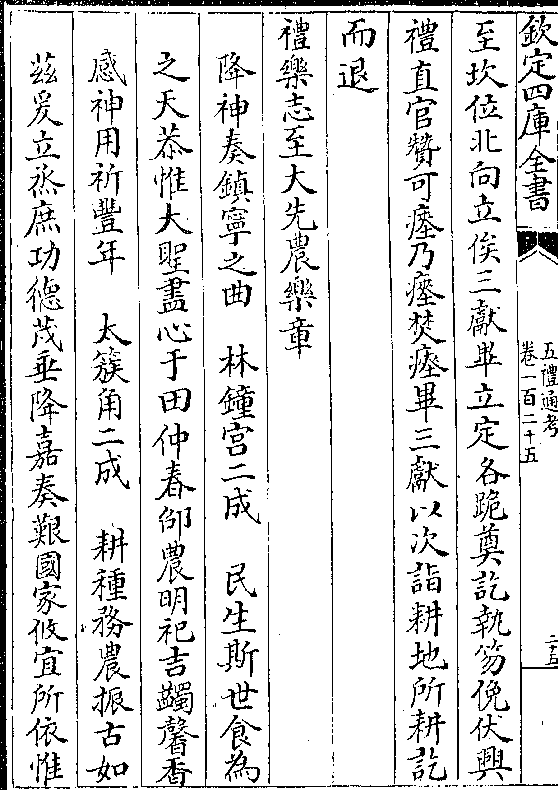 欽定四庫全書
五禮通考
卷一百二十五
二十五
至坎位北向立俟三獻畢立定各跪奠訖執笏俛伏興
禮直官贊可瘞乃瘞焚瘞畢三獻以次詣耕地所耕訖
而退
禮樂志至大先農樂章
降神奏鎮寧之曲 林鐘宫二成 民生斯世食為
之天恭惟大聖盡心于田仲春卲農明祀吉蠲馨香
感神用祈豐年 太簇角二成 耕種務農振古如
兹爰立烝庶功德茂垂降嘉奏艱國家攸宜所依惟